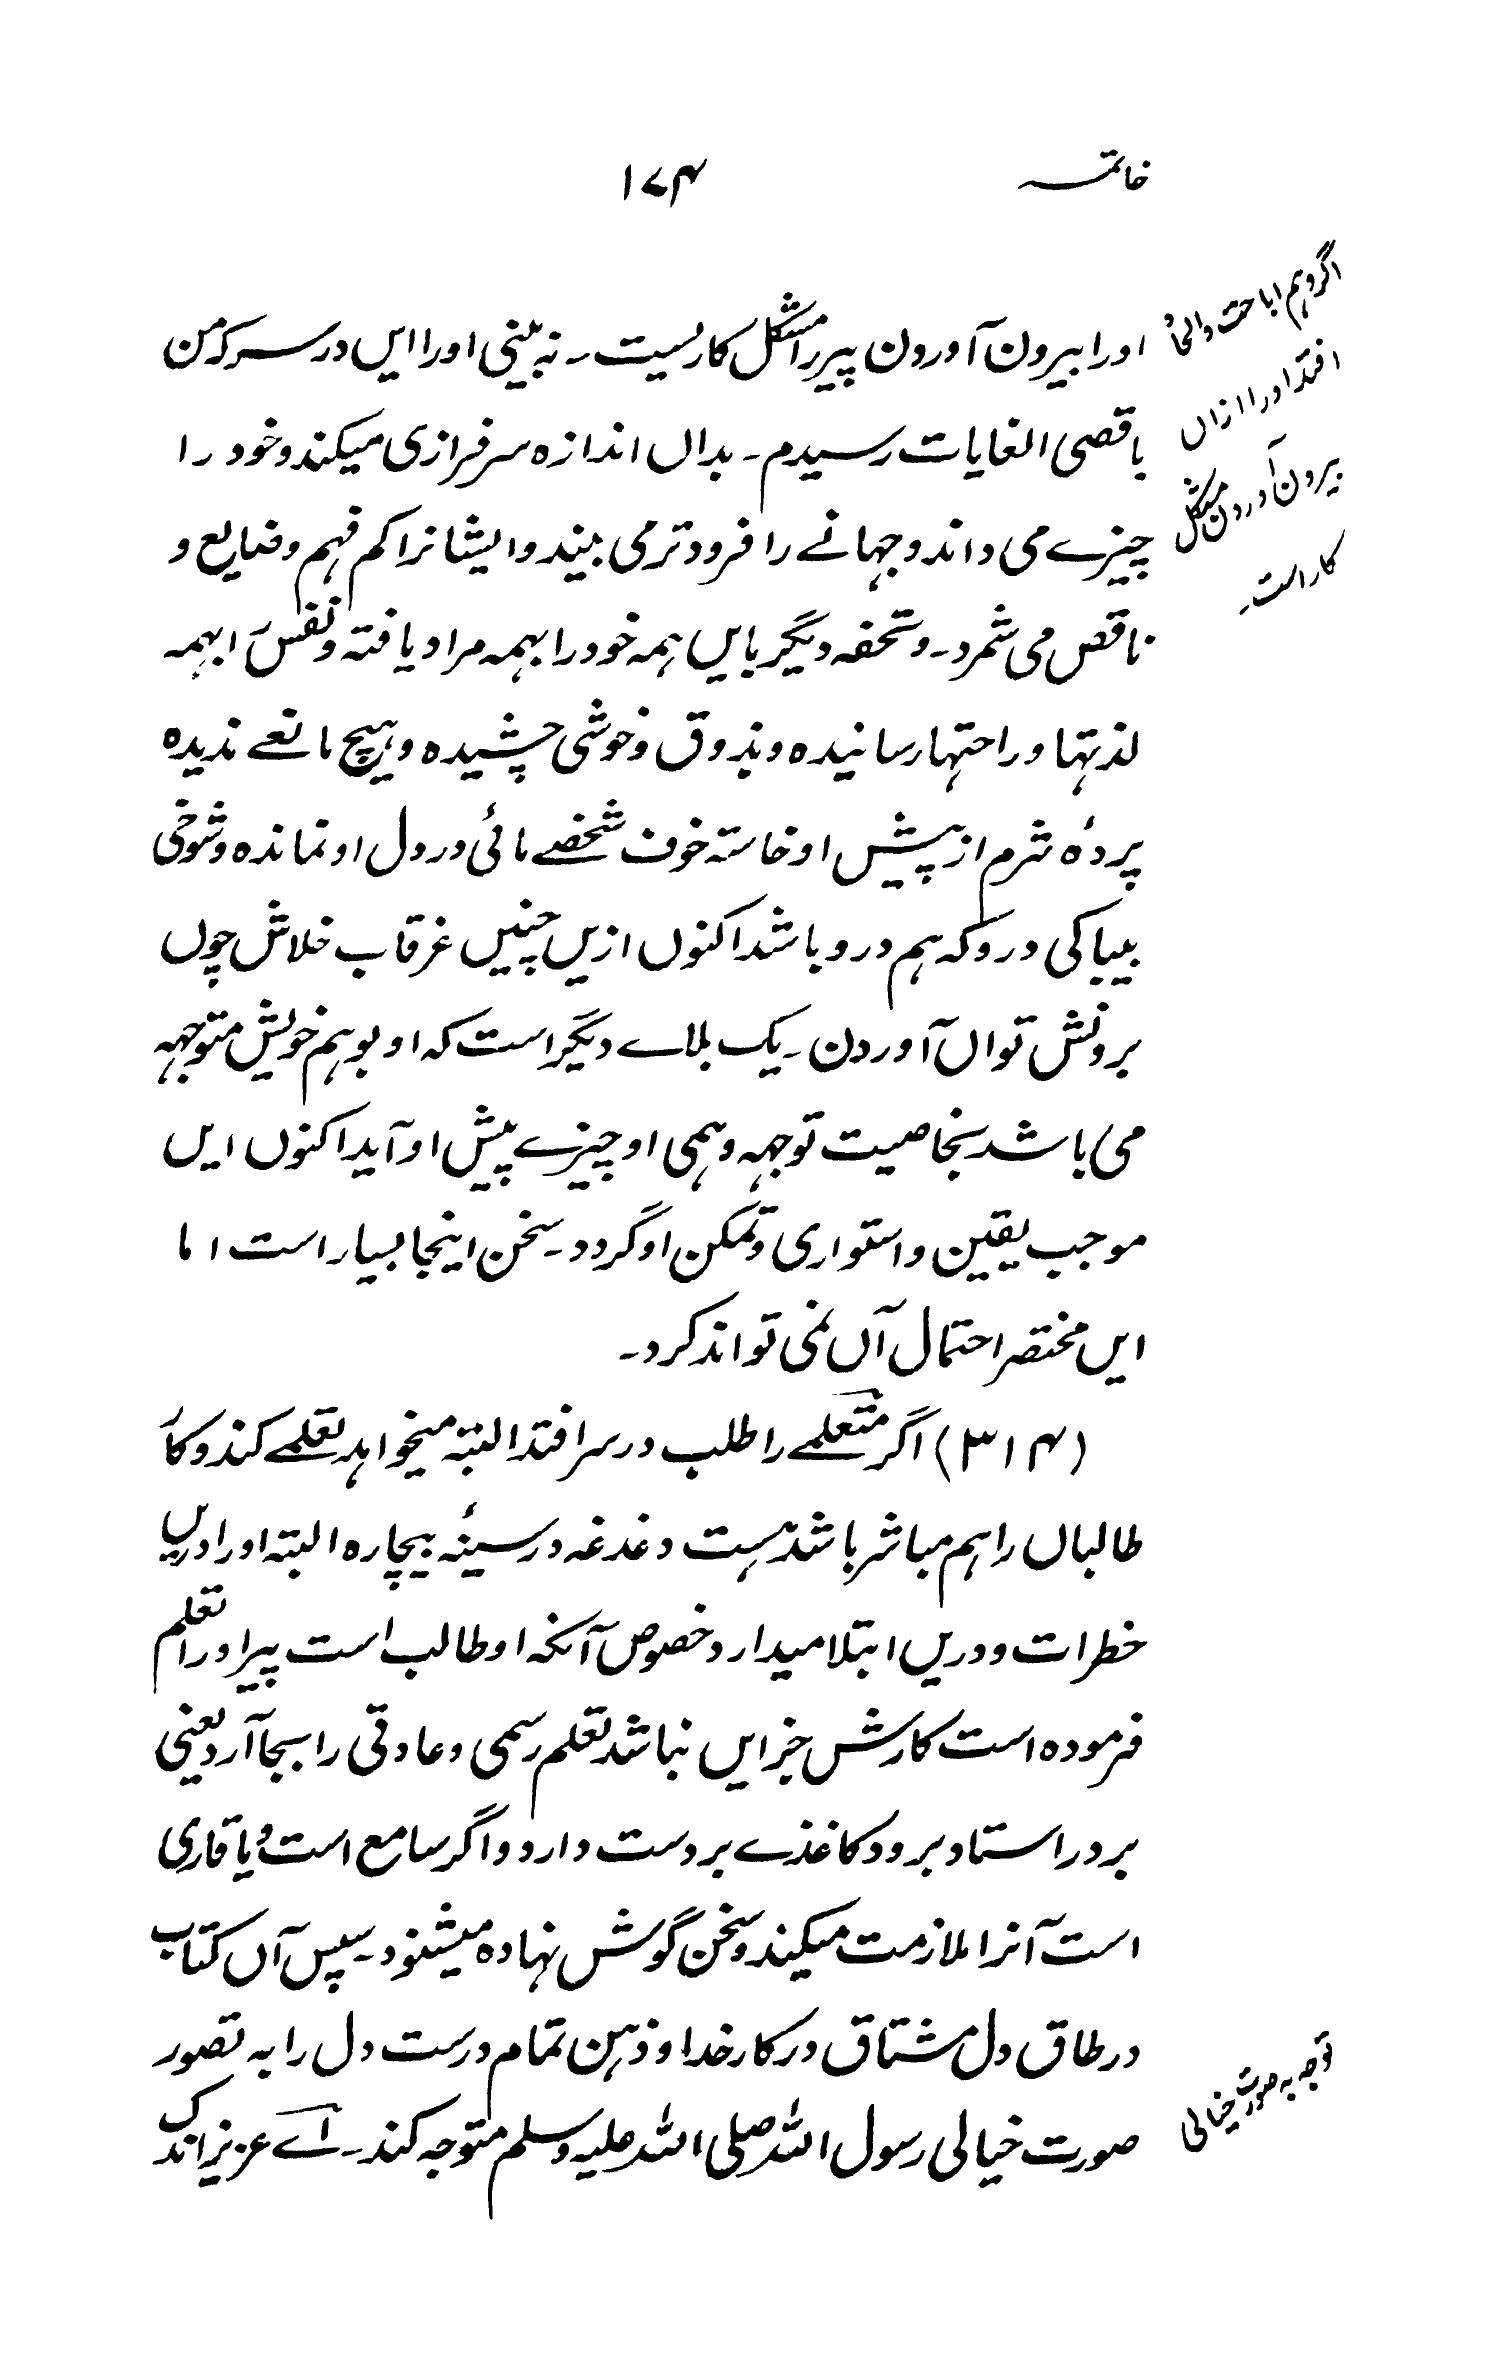 خاتمہ ۱۷۴
اگر وہم اباحت و الحاد
افتد او را ازاں
بیرون آوردن مشکل
کار است۔
او را بیرون آوردن پیر را مشکل کاریست۔ نہ بینی او را ایں در سر کہ من
باقصی الغایات رسیدم۔ بداں اندازہ سرفرازی میکند و خود را
چیزے می داند و جہانے را فرود تر می بیند و ایشانرا کم فہم و ضایع و
ناقص می شمرد۔ و تحفہ دیگر بایں ہمہ خود را بہمہ مراد یافتہ و نفس را بہمہ
لذتہا و راحتہا رسانیدہ و بذوق و خوشی چشیدہ و ہیچ مانعے ندیدہ
پردۂ شرم از پیش او خاستہ خوف شخصے مائی در دل او نماندہ و شوخی
بیباکی در و کہ ہم در و باشد اکنوں ازیں چنیں غرقاب خلاش چوں
برونش تواں آوردن۔ یک بلاے دیگر است کہ او بوہم خویش متوجہہ
می باشد بخاصیت توجہہ وہمی او چیزے پیش او آید اکنوں ایں
موجب یقین و استواری و تمکن او گردد۔ سخن اینجا بسیار است اما
ایں مختصر احتمال آں نمی تواند کرد۔
(۳۱۴) اگر متعلمے را طلب در سر افتد البتہ میخواہد تعلمے کند و کار
طالباں را ہم مباشر باشد ہست دغدغہ در سینۂ بیچارہ البتہ او را دریں
خطرات و دریں ابتلا میدارد خصوص آنکہ او طالب است پیر او را تعلم
فرمودہ است کارش جز ایں نباشد تعلم رسمی و عادتی را بجا آرد یعنی
بر در استاد برود کاغذے بر دست دارد و اگر سامع است و یا قاری
است آنرا ملازمت میکند و سخن گوش نہادہ میشنود۔ سپس آں کتاب
در طاق دل مشتاق در کار خدا و ذہن تمام درست دل را بہ تصور
صورت خیالی رسول اللہ صلی اللہ علیہ وسلم متوجہ کند۔ اے عزیز اندک
توجہ بہ صورت خیالی